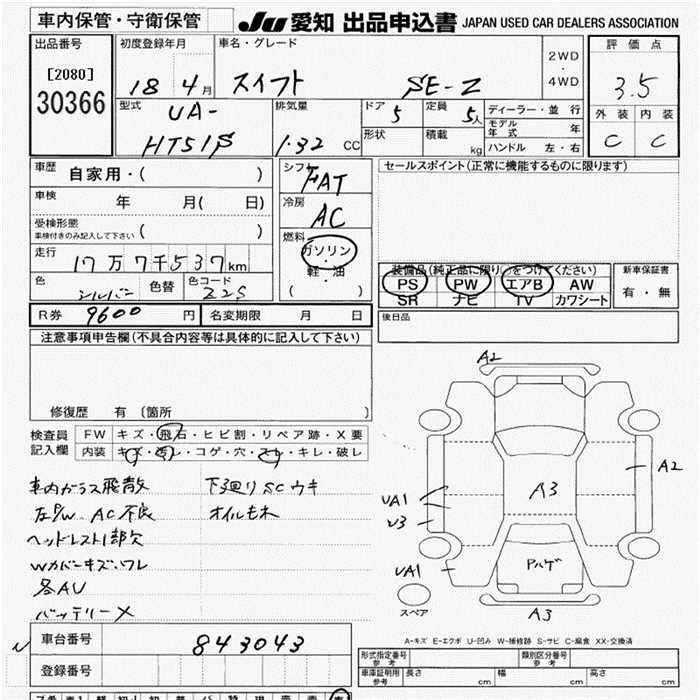 車内保管・守衛保管
JU 愛知 出品申込書 JAPAN USED CAR DEALERS ASSOCIATION
出品番号
[2080]
30366
初度登録年月
18 4月
車名・グレード
スイフト SE-Z
2WD
・
4WD
評価点
3.5
外装 内装
C C
型式
UA-
HT51S
排気量
1.32 CC
ドア
5
定員
5人
形状
積載 kg
ディーラー・並行
モデル年式 年
ハンドル 左・右
車歴
自家用・( )
車検
年 月( 日)
受検形態
車検付きのみ記入して下さい ( )
走行
17万7千537km
色
シルバー
色替
色コード
Z2S
シフト
FAT
冷房
AC
燃料
ガソリン
・
軽・油
( )
セールスポイント(正常に機能するものに限ります)
装備品(純正品に限り○をつけてください)
PS PW エアB AW
SR ナビ TV カワシート
新車保証書
有・無
後日品
R券 9600 円
名変期限 月 日
注意事項申告欄(不具合内容等は具体的に記入して下さい)
修復歴 有 〔箇所 〕
検査員
記入欄
FW キズ・飛石・ヒビ割・リペア跡・X要
内装 キズ・汚レ・コゲ・穴・スレ・キレ・破レ
車内ガラス飛散 下廻りSCウキ
左PW AC不良 オイルモレ
ヘッドレスト1部欠
Wカバーキズ・ワレ
各AU
バッテリーX
A2
A2
A3
UA1
U3
UA1
Pハゲ
A3
スペア
A-キズ E-エクボ U-凹み W-補修跡 S-サビ C-腐食 XX-交換済
車台番号
843043
登録番号
形式指定番号
参考
類別区分番号
参考
車庫証明用
参考
長さ cm 幅 cm 高さ cm